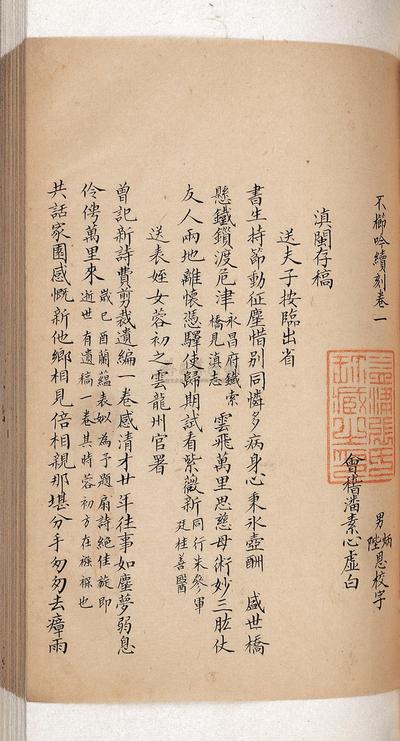 不櫛吟續刻卷一
男炳陞恩校字
會稽潘素心虛白
滇閩存稿
送夫子按臨出省
書生持節動征塵惜別同憐多病身心秉氷壺酬　盛世橋
懸鐵鎖渡危津永昌府鐵索橋見滇志雲飛萬里思慈母術妙三肱仗
友人兩地離懷憑驛使歸期試看紫薇新同行朱參軍廷桂善醫
送表姪女蓉初之雲龍州官署
曾記新詩費剪裁遺編一卷感清才廿年往事如塵夢弱息
伶俜萬里來歲己酉蘭蘊表姒為予題扇詩絕佳旋即逝世有遺稿一卷其時蓉初方在襁褓也
共話家園感慨新他鄉相見倍相親那堪分手匆匆去瘴雨